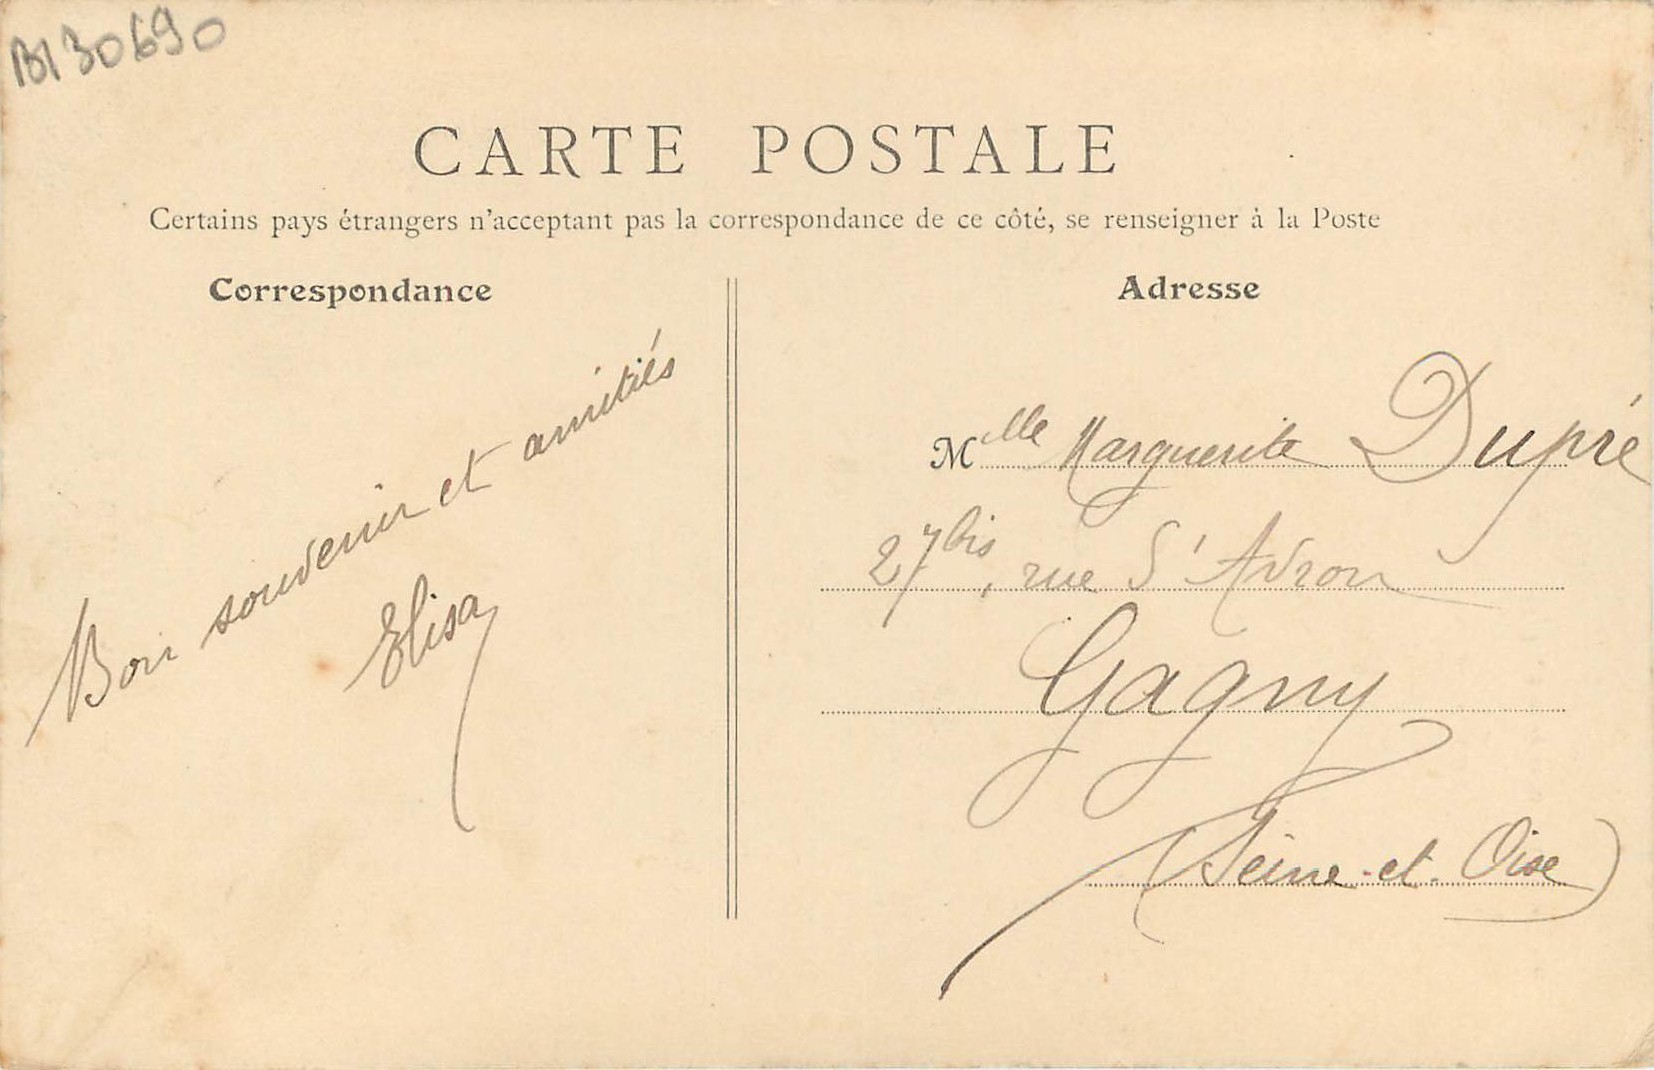 B130690
CARTE POSTALE
Certains pays étrangers n'acceptant pas la correspondance de ce côté, se renseigner à la Poste
Correspondance
Bon souvenir et amitiés
Elisa
Adresse
Mlle Marguerite Dupré
27 bis, rue d'Avron
Gagny
(Seine-et-Oise)